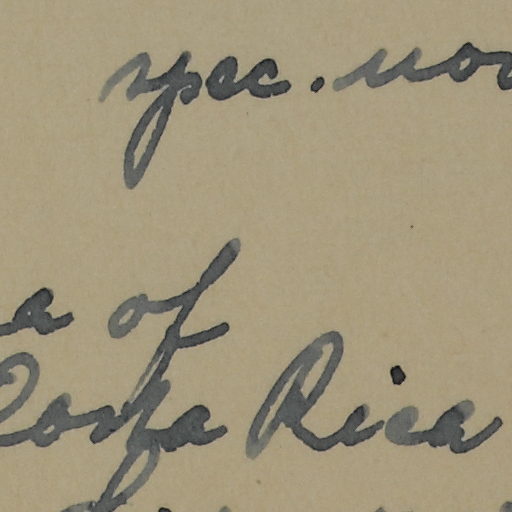 spec. nov
a of
Costa Rica